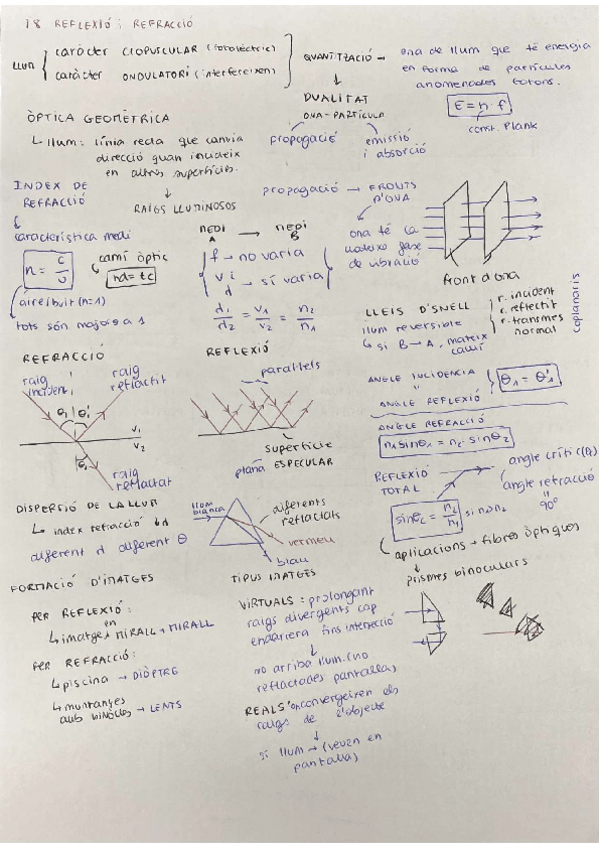 18 REFLEXIÓ i REFRACCIÓ
LLUM
caràcter CORPUSCULAR (fotoelèctric)
caràcter ONDULATORI (interfereixen)
QUANTITZACIÓ → ona de llum que té energia
en forma de partícules
anomenades fotons.
E = h · f
const. Plank
DUALITAT
ONA-PARTÍCULA
propagació
emissió
i absorció
ÒPTICA GEOMÈTRICA
↳ llum: línia recta que canvia
direcció quan incideix
en altres superfícies.
↓
RAIGS LLUMINOSOS
propagació → FRONTS
D'ONA
ona té la
mateixa fase
de vibració
front d'ona
INDEX DE
REFRACCIÓ
característica medi
n = c/v
camí òptic
nd = tc
aire i buit (n=1)
tots són majors a 1
MEDI A → MEDI B
f → no varia
v i d → sí varia
d1/d2 = v1/v2 = n2/n1
LLEIS D'SNELL
llum reversible
↳ si B → A, mateix
camí
r. incident
r. reflectit
r. transmes
normal
coplanaris
REFRACCIÓ
raig
incident
raig
reflectit
θ1 θ1'
v1
v2
θ2
raig
refractat
REFLEXIÓ
paral·lels
superfície
plana ESPECULAR
ANGLE INCIDENCIA
"
ANGLE REFLEXIÓ
θ1 = θ1'
ANGLE REFRACCIÓ
n1 sinθ1 = n2 · sinθ2
REFLEXIÓ
TOTAL
angle crític
angle refracció
"
90°
sinθc = n2/n1
aplicacions → fibres òptiques
prismes binoculars
DISPERSIÓ DE LA LLUM
↳ index refracció
diferent λ diferent θ
llum
blanca
diferents
refractats
vermell
blau
FORMACIÓ D'IMATGES
PER REFLEXIÓ:
↳ imatges en MIRALL → MIRALL
PER REFRACCIÓ:
↳ piscina → DIÒPTRE
↳ muntanyes
amb binocles → LENTS
TIPUS IMATGES
VIRTUALS: prolongant
raigs divergents cap
endarrera fins intersecció
↓
no arriba llum. (no
reflectades pantalla)
REALS: on convergeixen els
raigs de l'objecte
↓
sí llum → (veuen en
pantalla)